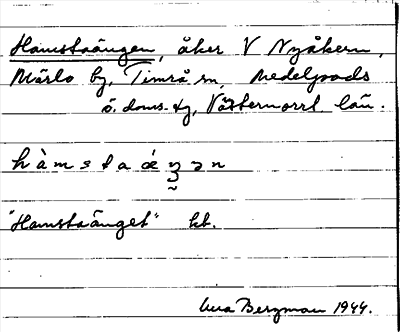 Hamstaängen, åker V Nyåkern,
Märlo by, Timrå sn, Medelpads
ö. doms. tg, Västernorrl. län.
hàmstaæ̀ŋən
"Hamstaänget" kt.
Bergman 1944.